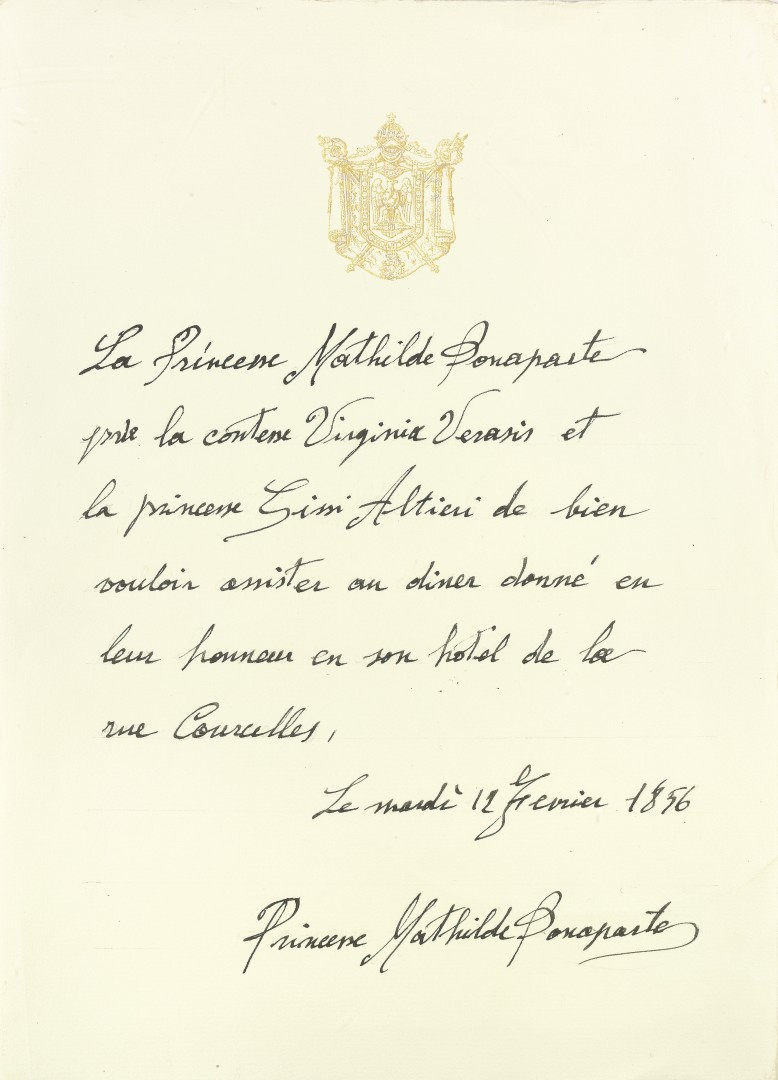 La Princesse Mathilde Bonaparte
prie la contesse Virginia Verasis et
la princesse Sissi Altieri de bien
vouloir assister au diner donné en
leur honneur en son hôtel de la
rue Courcelles,
Le mardi 12 Fevrier 1856
Princesse Mathilde Bonaparte